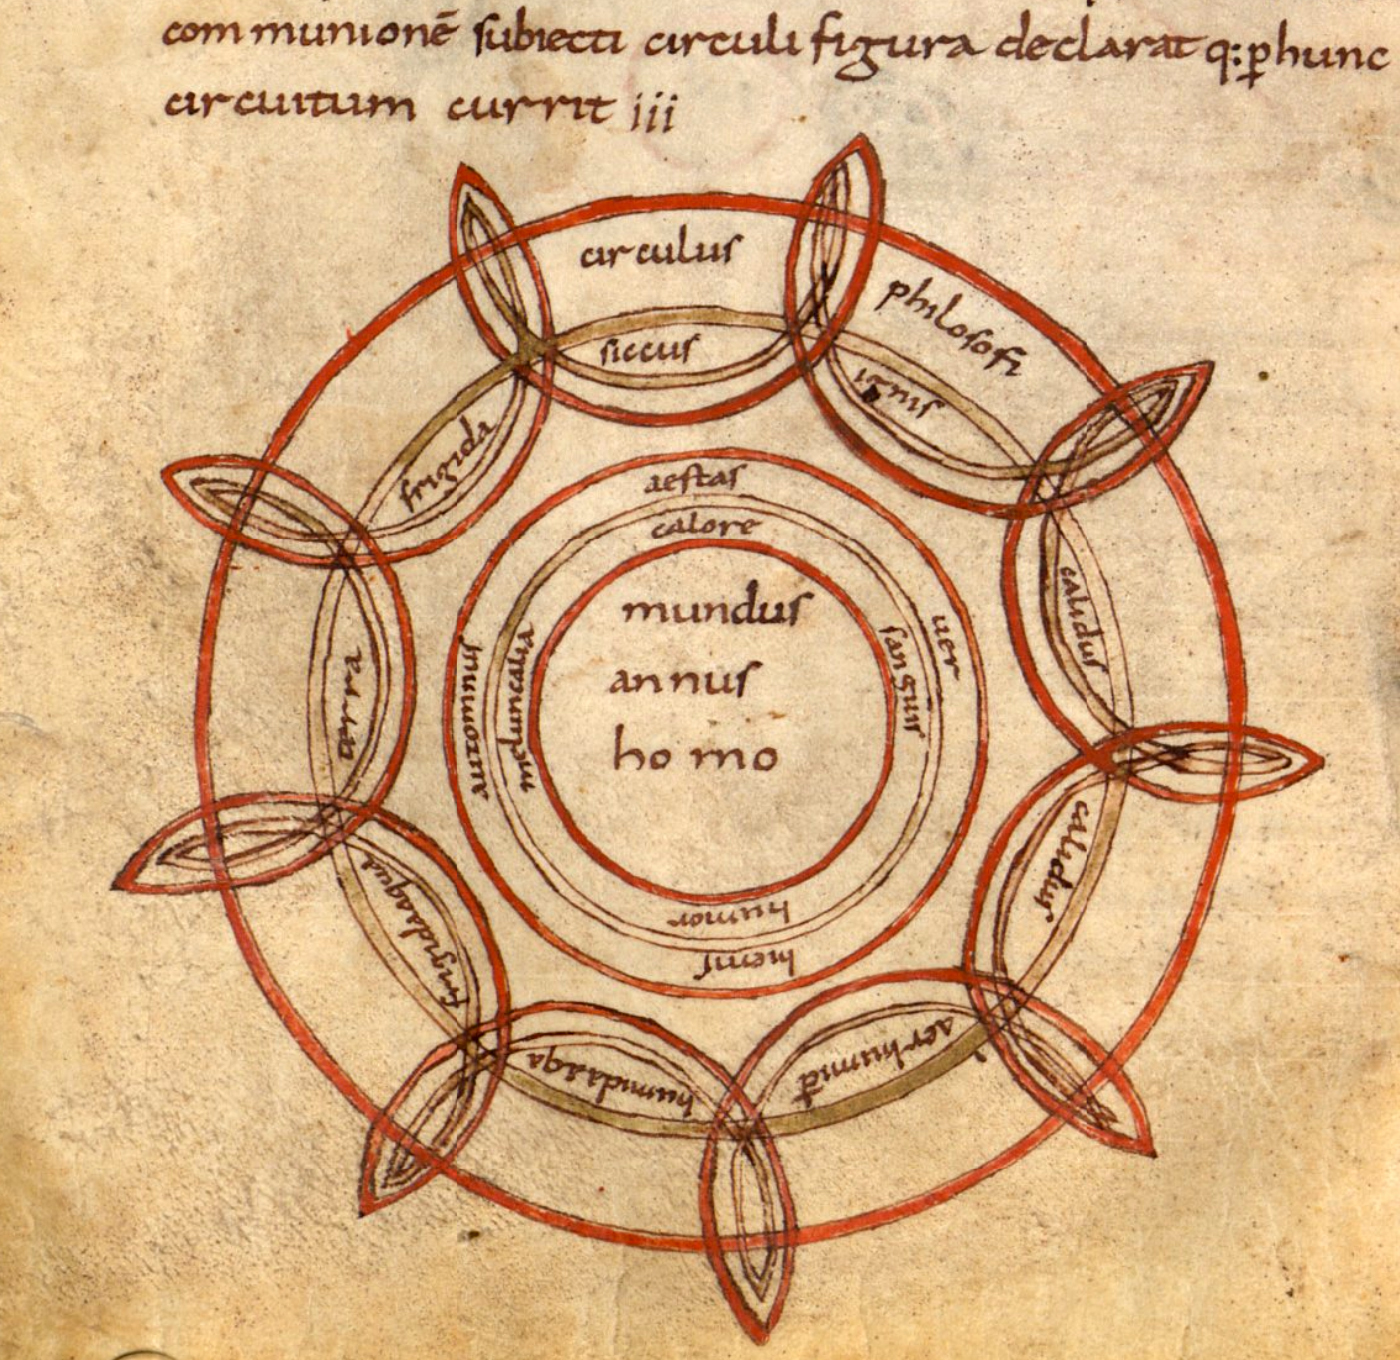 communionē subiecti circuli figura declarat q: ꝑhunc
circuitum currit iii
circulus
philosofi
siccus
ignis
calidus
calidus
aer humid
humida aqa
frigida aqua
terra
frigida
aestas
calore
uer
sanguis
hiems
humor
autumnus
melancalia
mundus
annus
homo